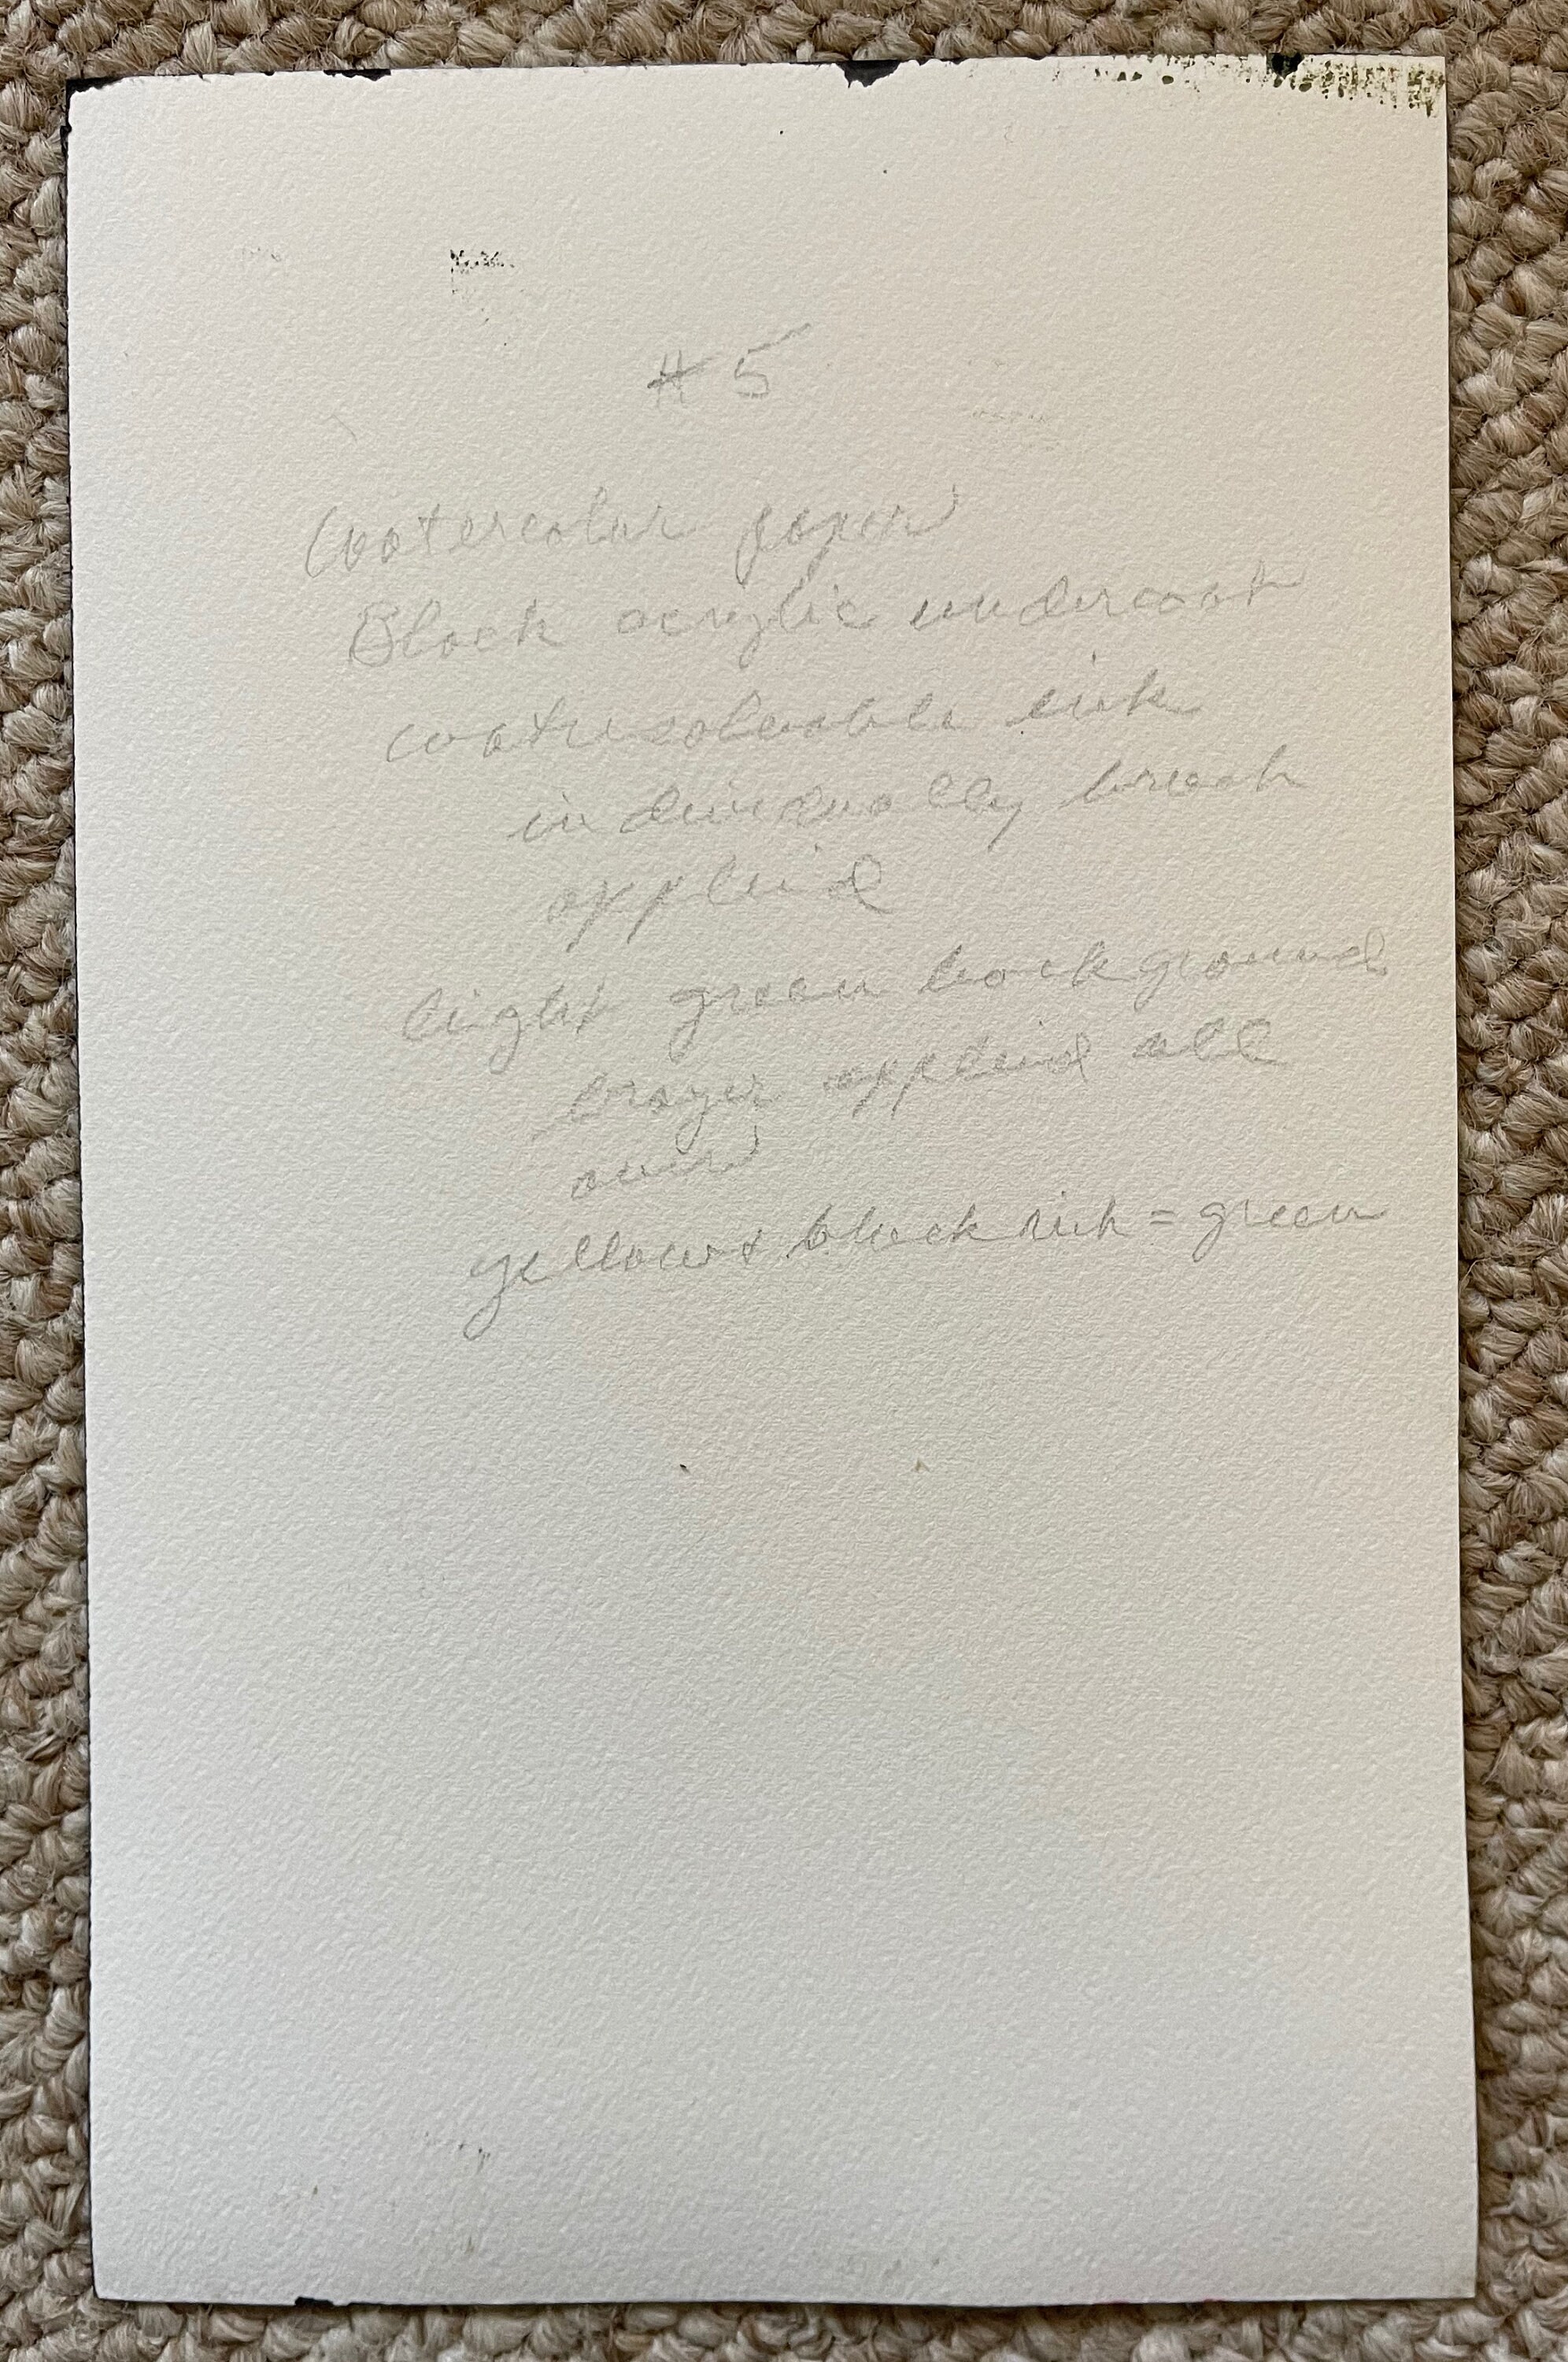 # 5
watercolor paper
Black acrylic undercoat
watersoluable ink
individually brush
applied
light green background
brayer applied all
over
yellow + black ink = green